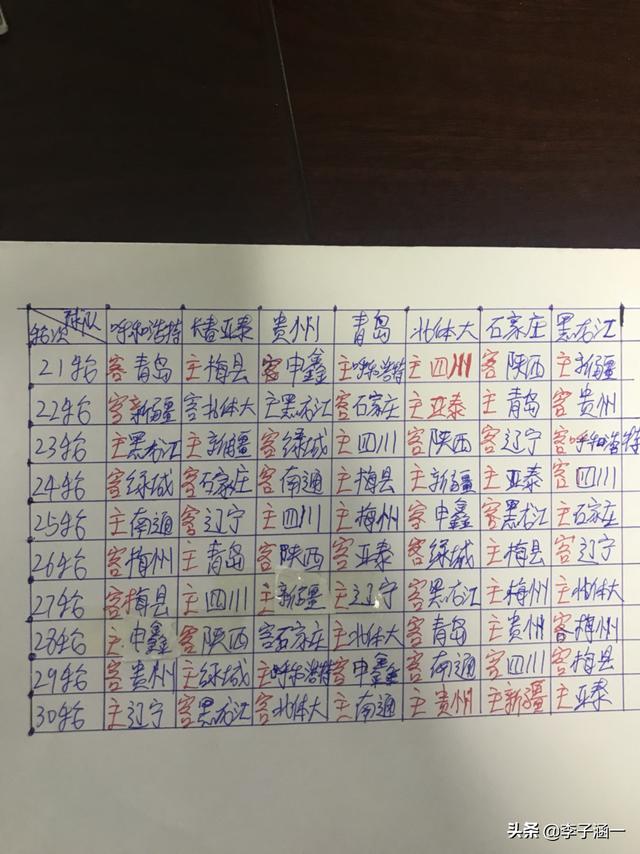 球队
轮次 呼和浩特 长春亚泰 贵州 青岛 北体大 石家庄 黑龙江
21轮 客青岛 主梅县 客申鑫 主呼和浩特 主四川 客陕西 主新疆
22轮 客新疆 客北体大 主黑龙江 客石家庄 主亚泰 主青岛 客贵州
23轮 主黑龙江 主新疆 客绿城 主四川 客陕西 客辽宁 客呼和浩特
24轮 客绿城 客石家庄 客南通 主梅县 主新疆 主亚泰 客四川
25轮 主南通 客辽宁 主四川 主梅州 客申鑫 客黑龙江 主石家庄
26轮 客梅州 主青岛 客陕西 客亚泰 客绿城 主梅县 客辽宁
27轮 客梅县 主四川 主新疆 主辽宁 客黑龙江 主梅州 主北体大
28轮 主申鑫 客陕西 客石家庄 主北体大 客青岛 主贵州 客梅州
29轮 客贵州 主绿城 主呼和浩特 客申鑫 客南通 客四川 客梅县
30轮 主辽宁 客黑龙江 客北体大 主南通 主贵州 主新疆 主亚泰
头条 @李子涵一